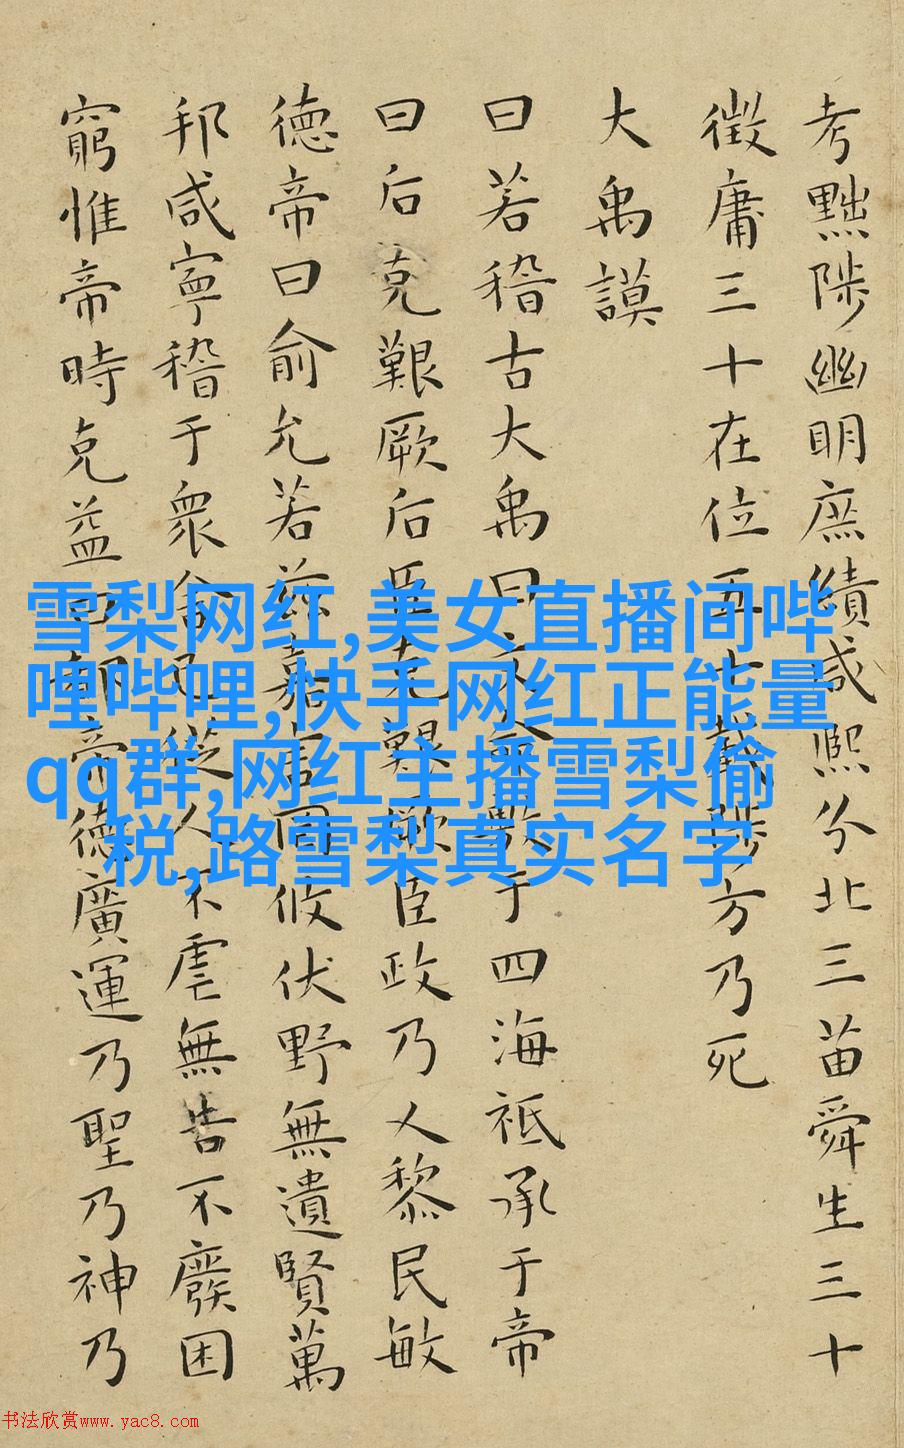 考黜陟幽明庶績咸熙分北三苗舜生三十
徵庸三十在位五十載陟方乃死
大禹謨
曰若稽古大禹曰文命敷于四海祗承于帝
曰后克艱厥后臣克艱厥臣政乃乂黎民敏
德帝曰俞允若茲嘉言罔攸伏野無遺賢萬
邦咸寧稽于衆舍己從人不虐無告不廢困
窮惟帝時克益曰都帝德廣運乃聖乃神乃
雪梨网红,美女直播间哔
哩哔哩,快手网红正能量
qq群,网红主播雪梨偷
税,路雪梨真实名字
书法欣赏www.yac8.com